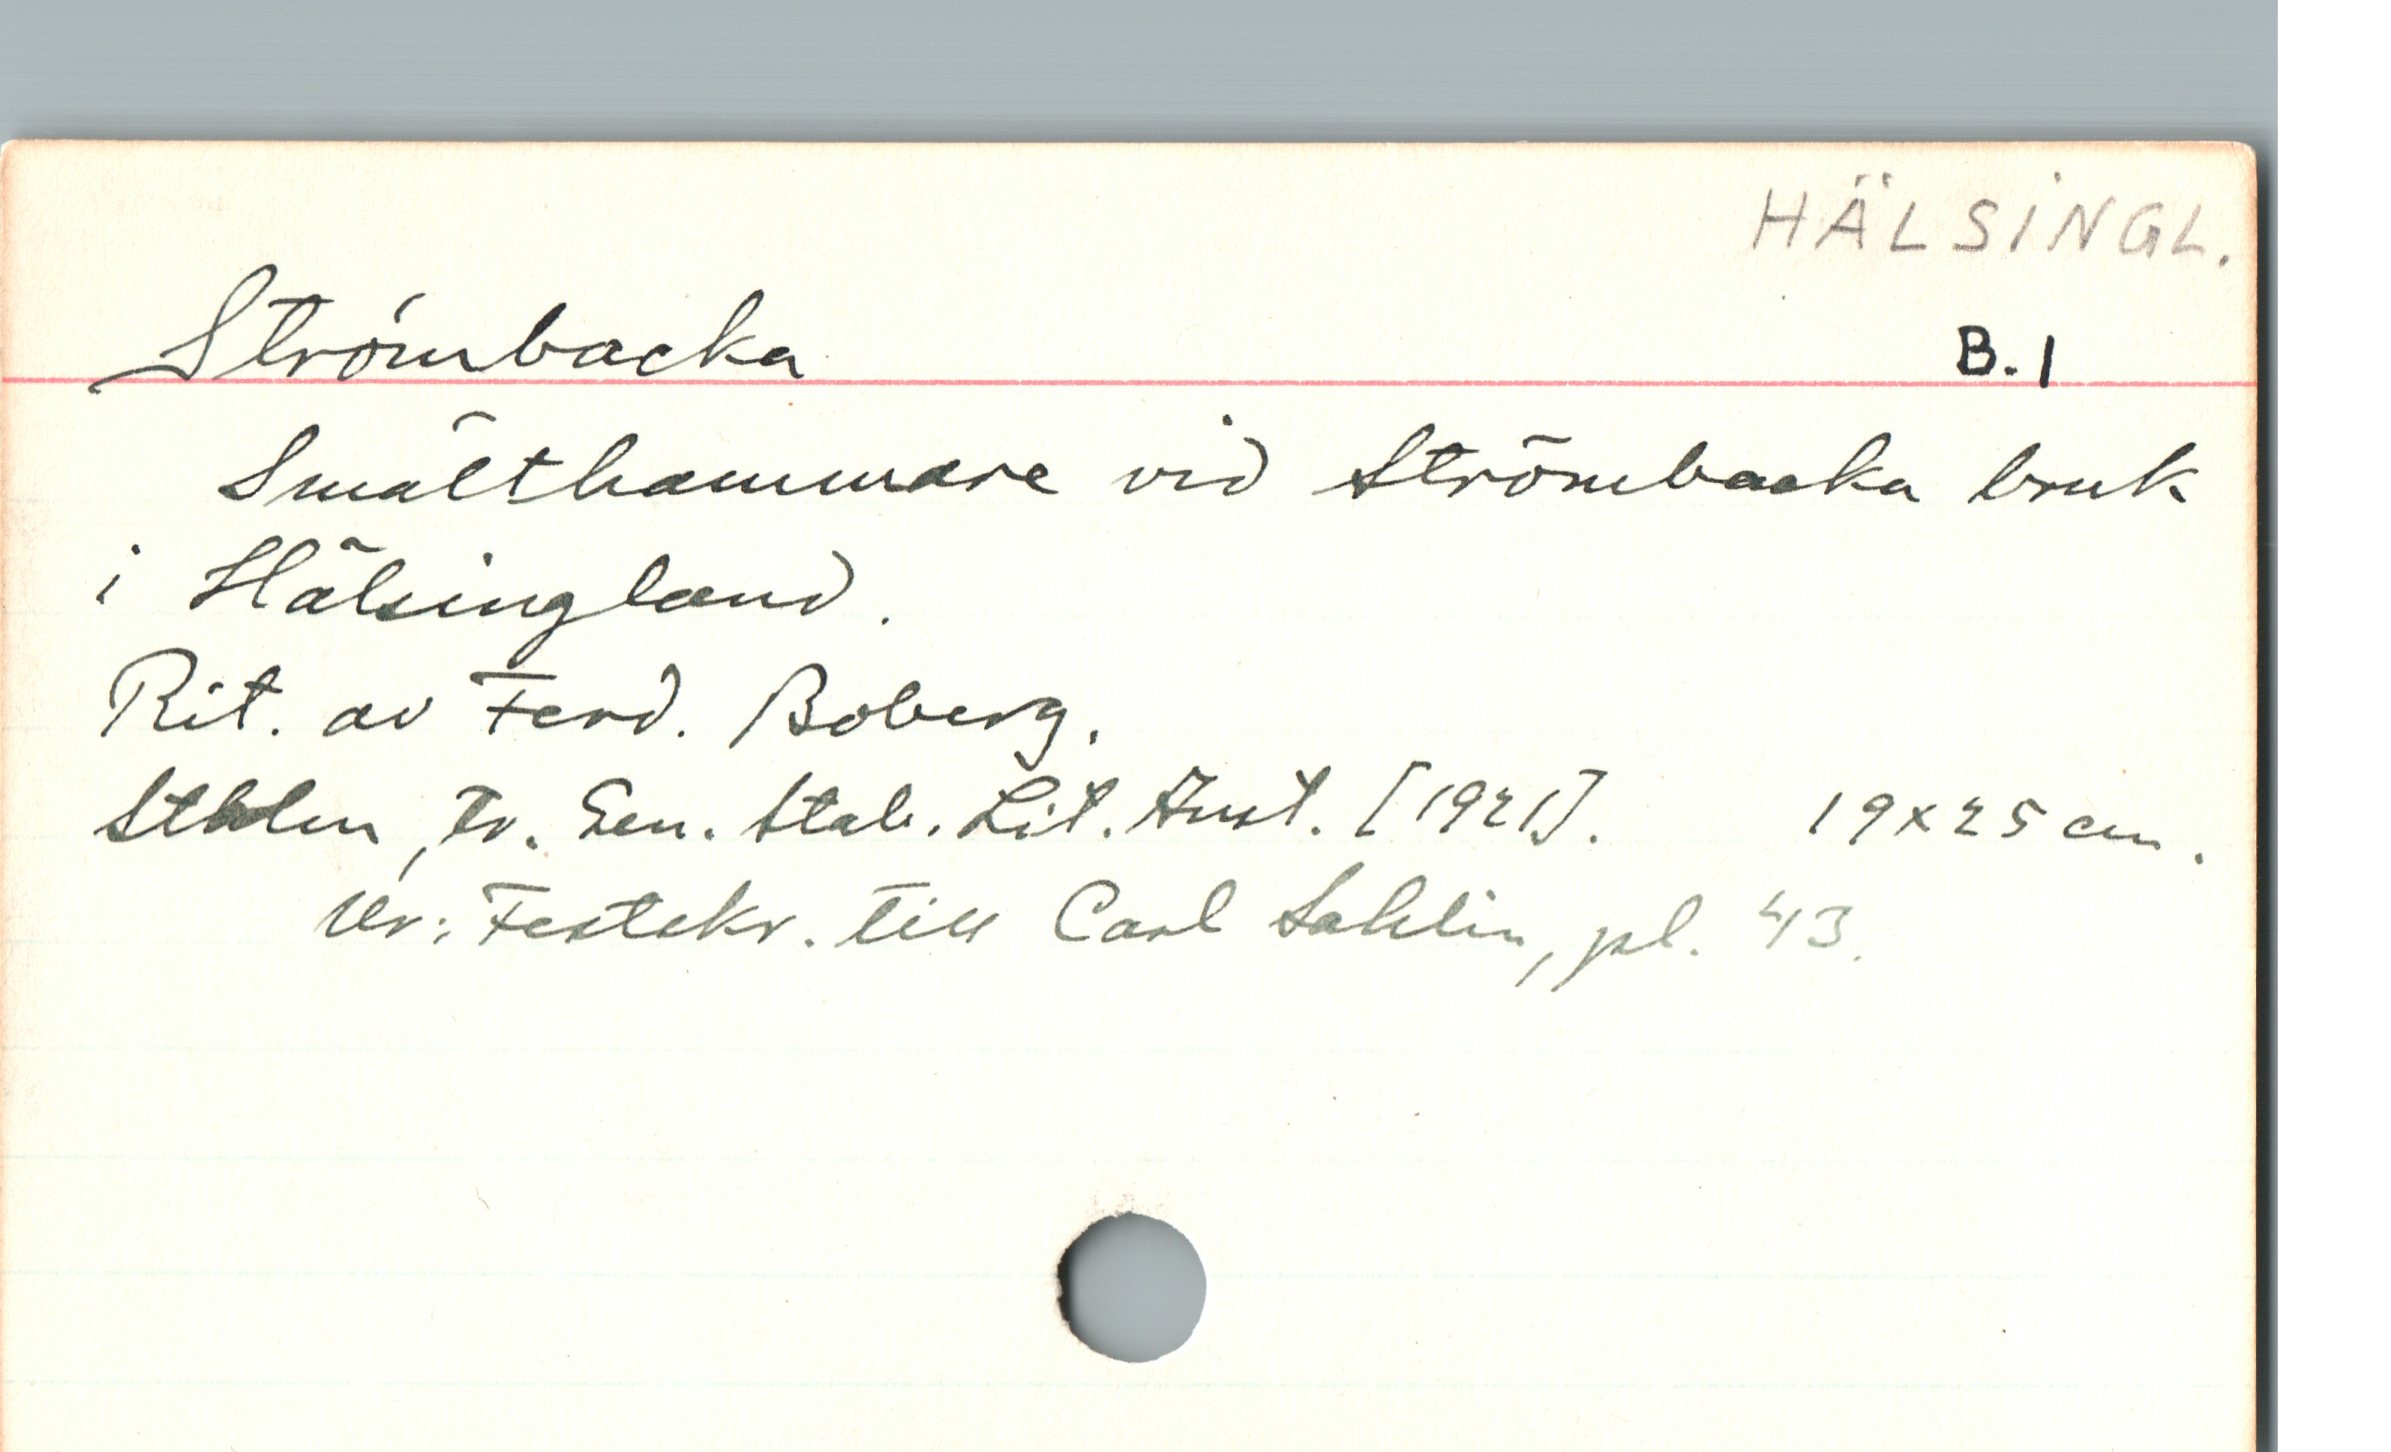 HÄLSINGL.
Strömbacka B.1
Smälthammare vid Strömbacka bruk
i Hälsingland.
Rit. av Ferd. Boberg.
Sthlm, Tr. Gen. Stab. Lit. Anst. [1921]. 19x25 cm.
Ur: Festskr. till Carl Sahlin, pl. 43.